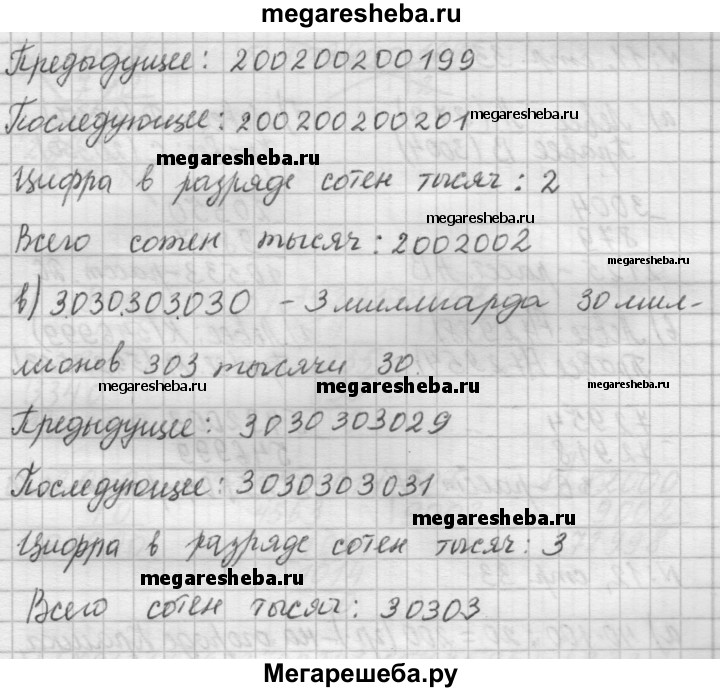 megaresheba.ru
Предыдущее: 200200200199
Последующее: 200200200201
megaresheba.ru
megaresheba.ru
Цифра в разряде сотен тысяч: 2
megaresheba.ru
Всего сотен тысяч: 2002002
megaresheba.ru
в) 3.030.303.030 - 3 миллиарда 30 мил-
лионов 303 тысячи 30.
megaresheba.ru
megaresheba.ru
megaresheba.ru
Предыдущее: 3030303029
Последующее: 3030303031
megaresheba.ru
Цифра в разряде сотен тысяч: 3
megaresheba.ru
Всего сотен тысяч: 30303
Мегарешеба.ру